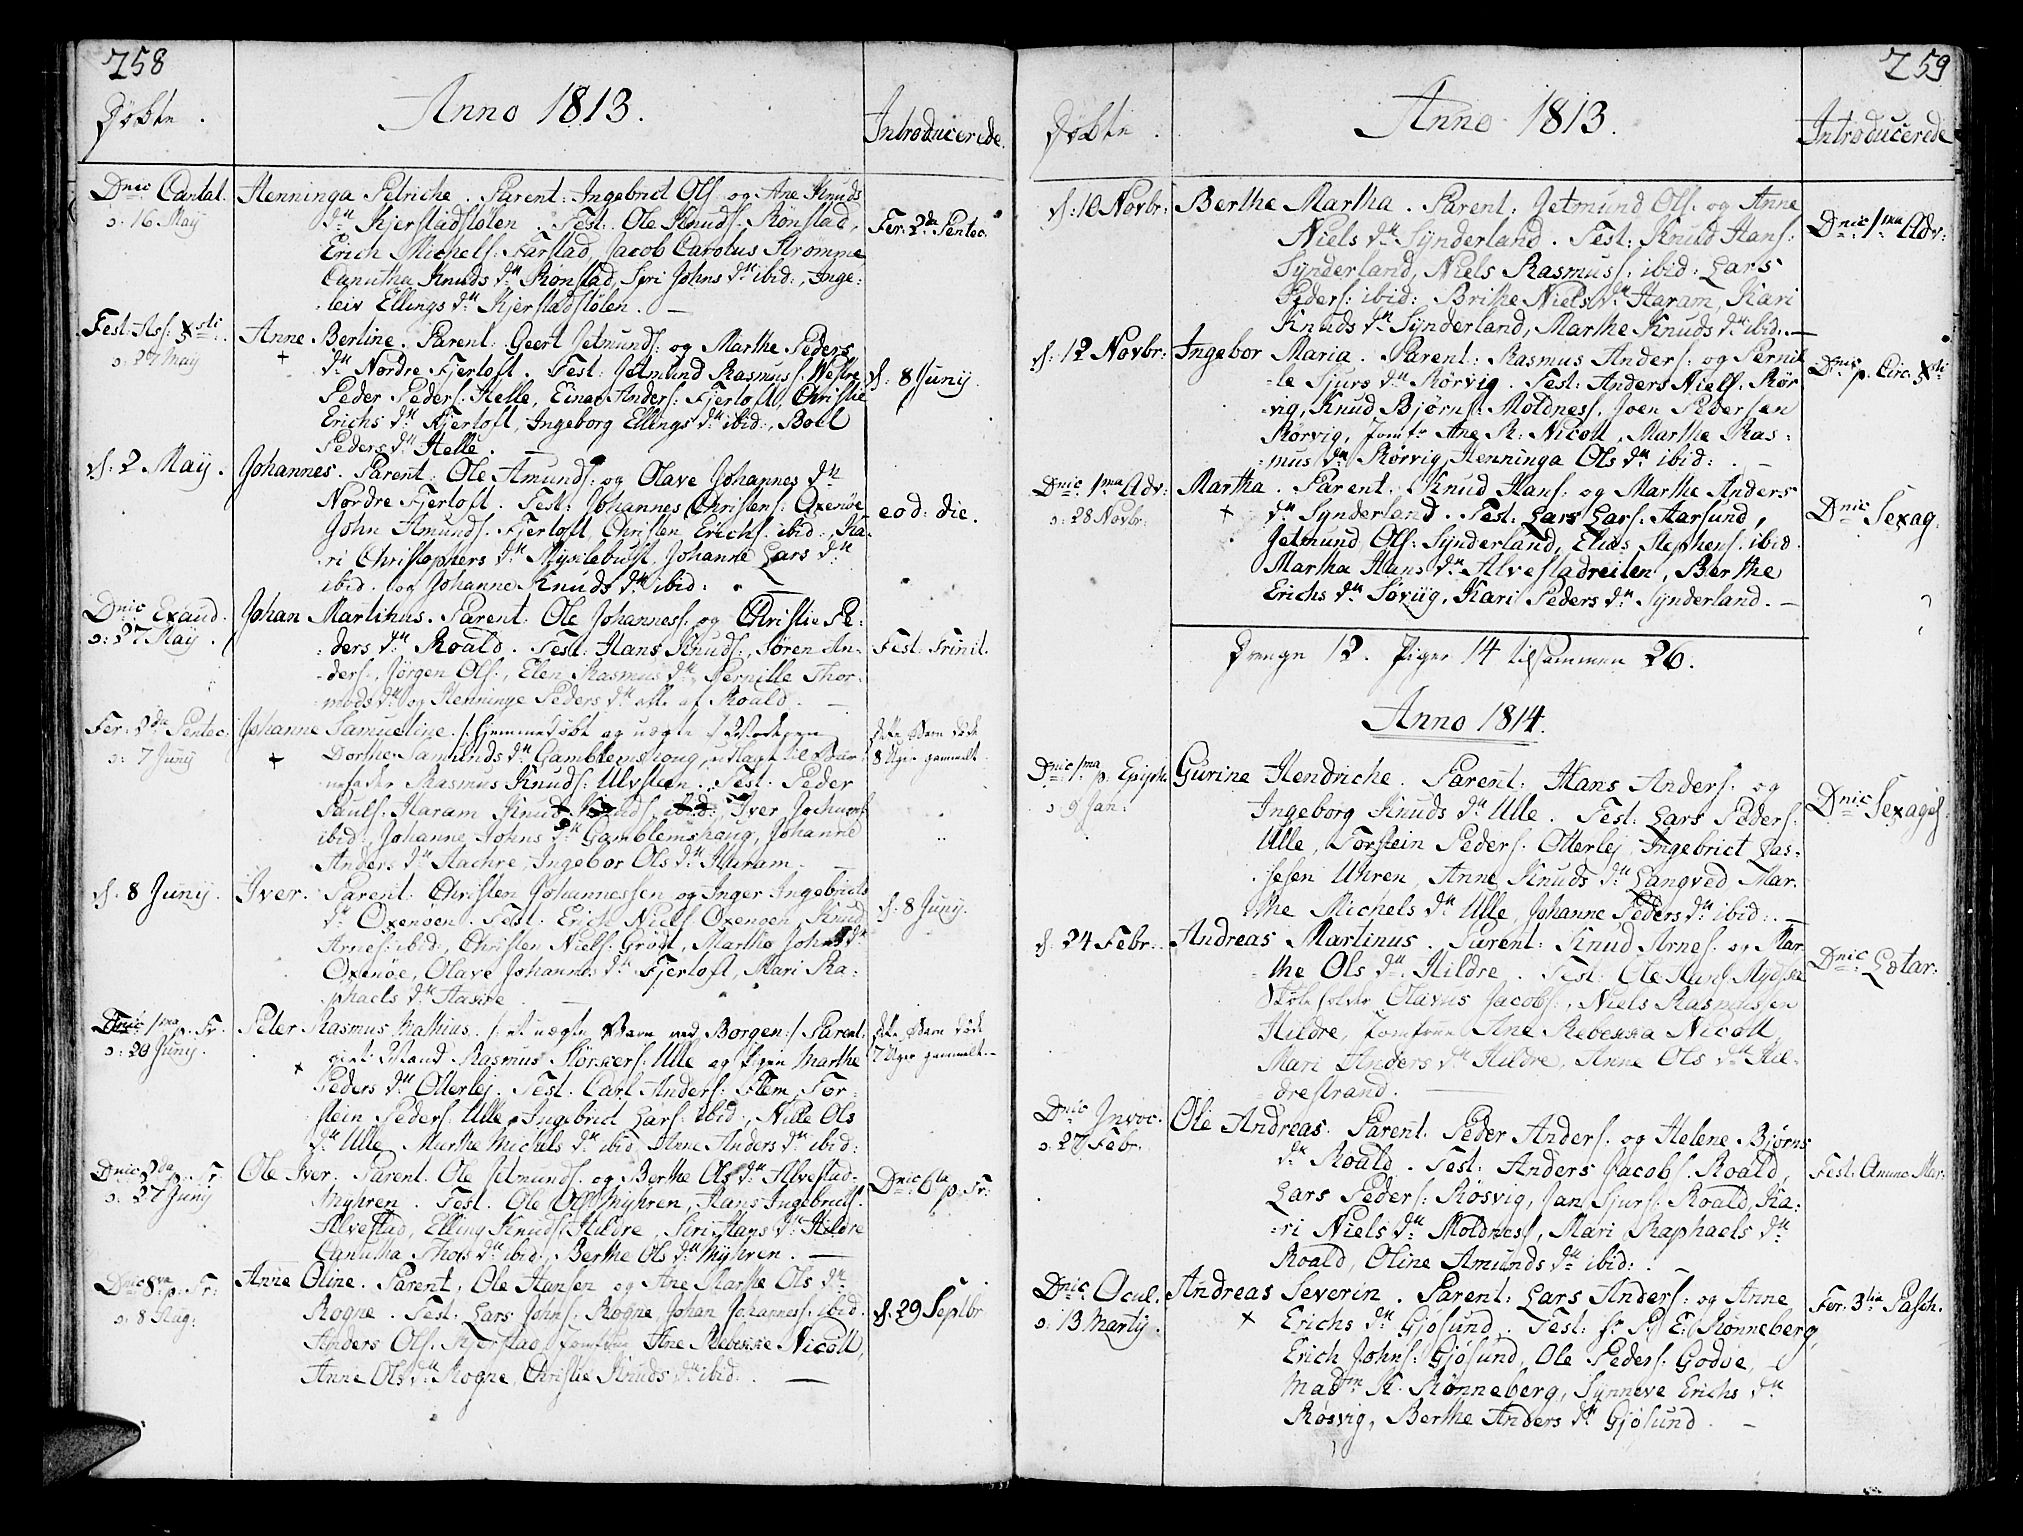 258
Døbte.
Anno 1813.
Introducerede.
Dnic Cantat.
ɔ: 16 Maij
Henninga Petriche. Parent: Ingebrict Ols: og Ane Knuds
dtr Kjerstadstølen. Test: Ole Knuds: Rönstad,
Erich Michels: Farstad, Jacob Carolus Strømme
Canutha Knuds dtr Ronstad, Siri Johns dtr ibid:, Inge:
:leiv Ellings dtr Kjerstadstølen. —
Fer: 2da Pentec:
Fest: As: Xsti
ɔ: 27 Maij
Anne Berline. Parent: Geert Jetmunds: og Marthe Peders
dtr Nordre Fjertoft. Test: Jetmund Rasmuss: Westre
Peder Peders: Helle, Einar Anders: Fjertoft, Christie
Erichs dtr Fjertoft, Ingeborg Ellings dtr ibid:, Boel
Peders dtr Helle. —
d: 8 Junij.
d: 2 Maij.
Johannes. Parent: Ole Amunds: og Olave Johannes dtr
Nordre Fjertoft. Test: Johannes Christens: Oxenöe
John Amunds: Fjertoft, Christen Erichs: ibid:, Ka:
:ri Christophers dtr Myklebust, Johanne Lars dtr
ibid. og Johanne Knuds dtr ibid:
eod: die.
Dnic Exaud.
ɔ: 27 Maij.
Johan Martinus. Parent: Ole Johanness: og Christie Pe:
:ders dtr Roald. Test: Hans Knuds:, Søren An:
:ders:, Jörgen Ols:, Elen Rasmus dtr, Pernille Thor:
mods dtr og Henninge Peders dtr alle af Roald. —
Fest: Trinit.
Fer: 2da Pentec:
ɔ: 7 Junij
Johanne Samueline. /: hjemmedøbt og uægte :/ Moderen
Dorthe Samunds dtr Gamblemshoug, udlagt til Bar:
:nefader Rasmus Knuds: Ulvsteen. Test: Peder
Pauls: Haram Knud Knuds: ibid:, Iver Jochums:
ibid: Johanne Johns dtr Gamblemshoug, Johanne
Anders dtr Stachre, Ingebor Ols dtr Haram. —
dette Barn døde
8 Uger gammelt.
d: 8 Junij.
Iver. Parent: Christen Johannessen og Inger Ingebricts
dtr Oxenoen. Test: Erich Niels: Oxenoen, Knud
Arnes: ibid:, Christen Niels: Gröet, Marthe Johns dtr
Oxenöe, Olave Johannes dtr Fjertoft, Mari Ra:
:phaels dtr —
d: 8 Junij.
Dnic 1ma p. Tr.
ɔ: 20 Junij.
Peter Rasmus Mathias. /: et uægte Barn med Borgen :/ Parent:
gift Mand Rasmus Ulle og Pigen Marthe
Peders dtr Otterlej. Test: Carl Anders: Flem, Tor:
:stein Peders: Ulle, Ingebrict Lars: ibid:, Nille Ols
dtr Ulle, Marthe Michels dtr ibid, Anne Anders dtr ibid:
dette Barn døde
7 Uger gammelt. —
Dnic 2da p. Tr.
ɔ: 27 Junij
Ole Iver. Parent: Ole Jetmunds: og Berthe Ols dtr Alvestad-
Myhren. Test: Ole Ols: Myhren, Hans Ingebricts:
Alvestad, Elling Knuds: Hildre, Siri Hans dtr Hildre
Canutha dtr ibid:, Berthe Ols dtr Myhren. —
Dnic 6ta p. Tr:
Dnic 8va p. Tr:
ɔ: 8 Aug:
Anne Oline. Parent: Ole Hansen og Ane Marthe Ols dtr
Rogne. Test: Lars Johns: Rogne, Johan Johanness: ibid:
Anders Ols: Kjerstad, Jomfrue Ane Rebekke Nicoll,
Anne Ols dtr Rogne, Christie Knuds dtr ibid:. —
d: 29 Septbr
259
Døbte.
Anno 1813.
Introducerede
d: 10 Novbr:
Berthe Martha. Parent: Jetmund Ols: og Anne
Niels dtr Synderland. Test: Knud Hans:
Synderland, Niels Rasmuss: ibid: Lars
Peders: ibid: Brithe Niels dtr Haram, Kari
Knuds dtr Synderland, Marthe Knuds dtr ibid: —
Dnic 1ma Adv:
d: 12 Novbr:
Ingebor Maria. Parent: Rasmus Anders: og Pernil
:le Sjurs dtr Rörvig. Test: Anders Niels: Rör
:vig, Knud Bjørns: Moldnes, Joen Pedersen
Rörvig, Jomfr Ane R: Nicoll, Marthe Ras:
:mus dtr Rörvig, Henninga Ols dtr ibid: —
Dnic p. Circ. Xsti
Dnic 1ma Adv:
ɔ: 28 Novbr:
Martha. Parent: Knud Hans: og Marthe Anders
dtr Synderland. Test: Lars Lars: Aarsund,
Jetmund Ols: Synderland, Elias Stephens: ibid
Martha Hans dtr Alvestadreiten, Berthe
Erichs dtr Søviig, Kari Peders dtr Synderland. —
Dnic Sexag:
Drenge 12. Piger 14 tilsammen 26.
Anno 1814.
Dnic 1ma p. Epiph:
ɔ: 9 Jan:
Gurine Hendriche. Parent: Hans Anders: og
Ingeborg Knuds dtr Ulle. Test: Lars Peders:
Ulle, Torstein Peders: Otterlej, Ingebrict Las:
:sesen Uhren, Anne Knuds dtr Langved, Mar:
:the Michels dtr Ulle, Johanne Peders dtr ibid: —
Dnic Sexages.
d: 24 Febr:
Andreas Martinus. Parent: Knud Arnes: og Mar:
:the Ols dtr Hildre. Test: Ole
Olavus Jacobs:, Niels Rasmussen
Hildre, Jomfrue Ane Rebekka Nicoll,
Mari Anders dtr Hildre, Anne Ols dtr Hil:
:drestrand. —
Dnic Lætar:
Dnic Invoc:
ɔ: 27 Febr.
Ole Andreas. Parent: Peder Anders: og Helene Bjørns
dtr Roald. Test: Anders Jacobs: Roald,
Lars Peders: Røsvig, Jan Sjurs: Roald, Ka:
:ri Niels dtr Moldnes, Mari Raphaels dtr
Roald, Oline Amunds dtr ibid:.
Fest: Anunc: Mar:
Dnic Ocul.
ɔ: 13 Martij.
Andreas Severin. Parent: Lars Anders: og Anne
Erichs dtr Gjøsund. Test: Hr P: E: Rønneberg,
Erich Johns: Gjøsund, Ole Peders: Godøe,
Madm K. Rønneberg, Synneve Erichs dtr
Røsvig, Berthe Anders dtr Gjøsund. —
Fer: 3tia Pasch.